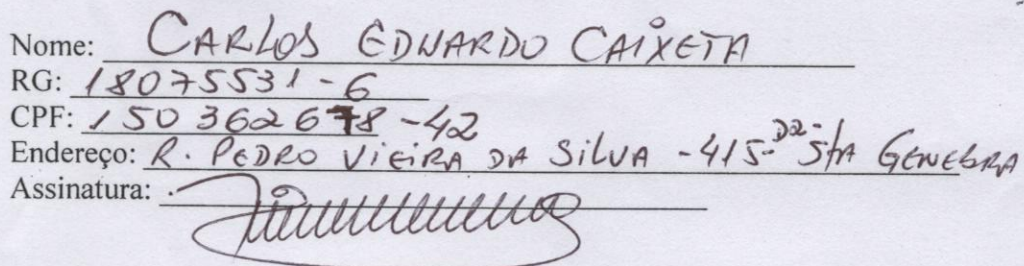 Nome: CARLOS EDUARDO CAIXETA
RG: 18075531-6
CPF: 150362678-42
Endereço: R. PEDRO VIEIRA DA SILVA - 415- D2- Sta GENEBRA
Assinatura: